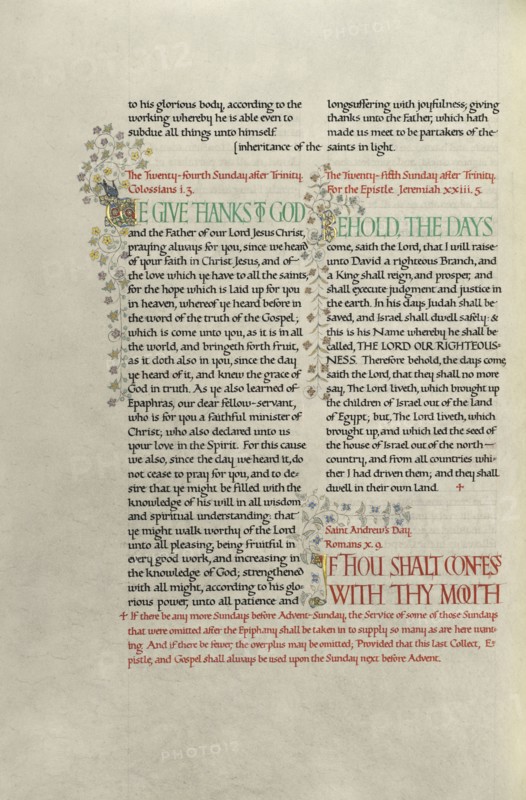 to his glorious body, according to the
working whereby he is able even to
subdue all things unto himself.
The Twenty-fourth Sunday after Trinity.
Colossians i. 3.
WE GIVE THANKS TO GOD
and the Father of our Lord Jesus Christ,
praying always for you, since we heard
of your Faith in Christ Jesus, and of
the love which ye have to all the saints,
for the hope which is laid up for you
in heaven, whereof ye heard before in
the word of the truth of the Gospel;
which is come unto you, as it is in all
the world, and bringeth forth fruit,
as it doth also in you, since the day
ye heard of it, and knew the grace of
God in truth. As ye also learned of
Epaphras, our dear fellow-servant,
who is for you a faithful minister of
Christ; who also declared unto us
your love in the Spirit. For this cause
we also, since the day we heard it, do
not cease to pray for you, and to de-
sire that ye might be filled with the
knowledge of his will in all wisdom
and spiritual understanding: that
ye might walk worthy of the Lord
unto all pleasing, being fruitful in
every good work, and increasing in
the knowledge of God; strengthened
with all might, according to his glo-
rious power, unto all patience and
longsuffering with joyfulness; giving
thanks unto the Father, which hath
made us meet to be partakers of the
[inheritance of the saints in light.
The Twenty-fifth Sunday after Trinity.
For the Epistle. Jeremiah xxiii. 5.
BEHOLD, THE DAYS
come, saith the Lord, that I will raise
unto David a righteous Branch, and
a King shall reign, and prosper, and
shall execute judgment and justice in
the earth. In his days Judah shall be
saved, and Israel shall dwell safely: &
this is his Name whereby he shall be
called, THE LORD OUR RIGHTEOUS-
NESS. Therefore behold, the days come,
saith the Lord, that they shall no more
say, The Lord liveth, which brought up
the children of Israel out of the land
of Egypt; but, The Lord liveth, which
brought up, and which led the seed of
the house of Israel out of the north
country, and from all countries whi-
ther I had driven them; and they shall
dwell in their own Land. +
Saint Andrew's Day.
Romans x. 9.
IF THOU SHALT CONFESS
WITH THY MOUTH
+ If there be any more Sundays before Advent-Sunday, the Service of some of those Sundays
that were omitted after the Epiphany shall be taken in to supply so many as are here want-
ing. And if there be fewer, the overplus may be omitted; Provided that this last Collect, E-
pistle, and Gospel shall always be used upon the Sunday next before Advent.
PHOTO12
PHOTO12
PHOTO12